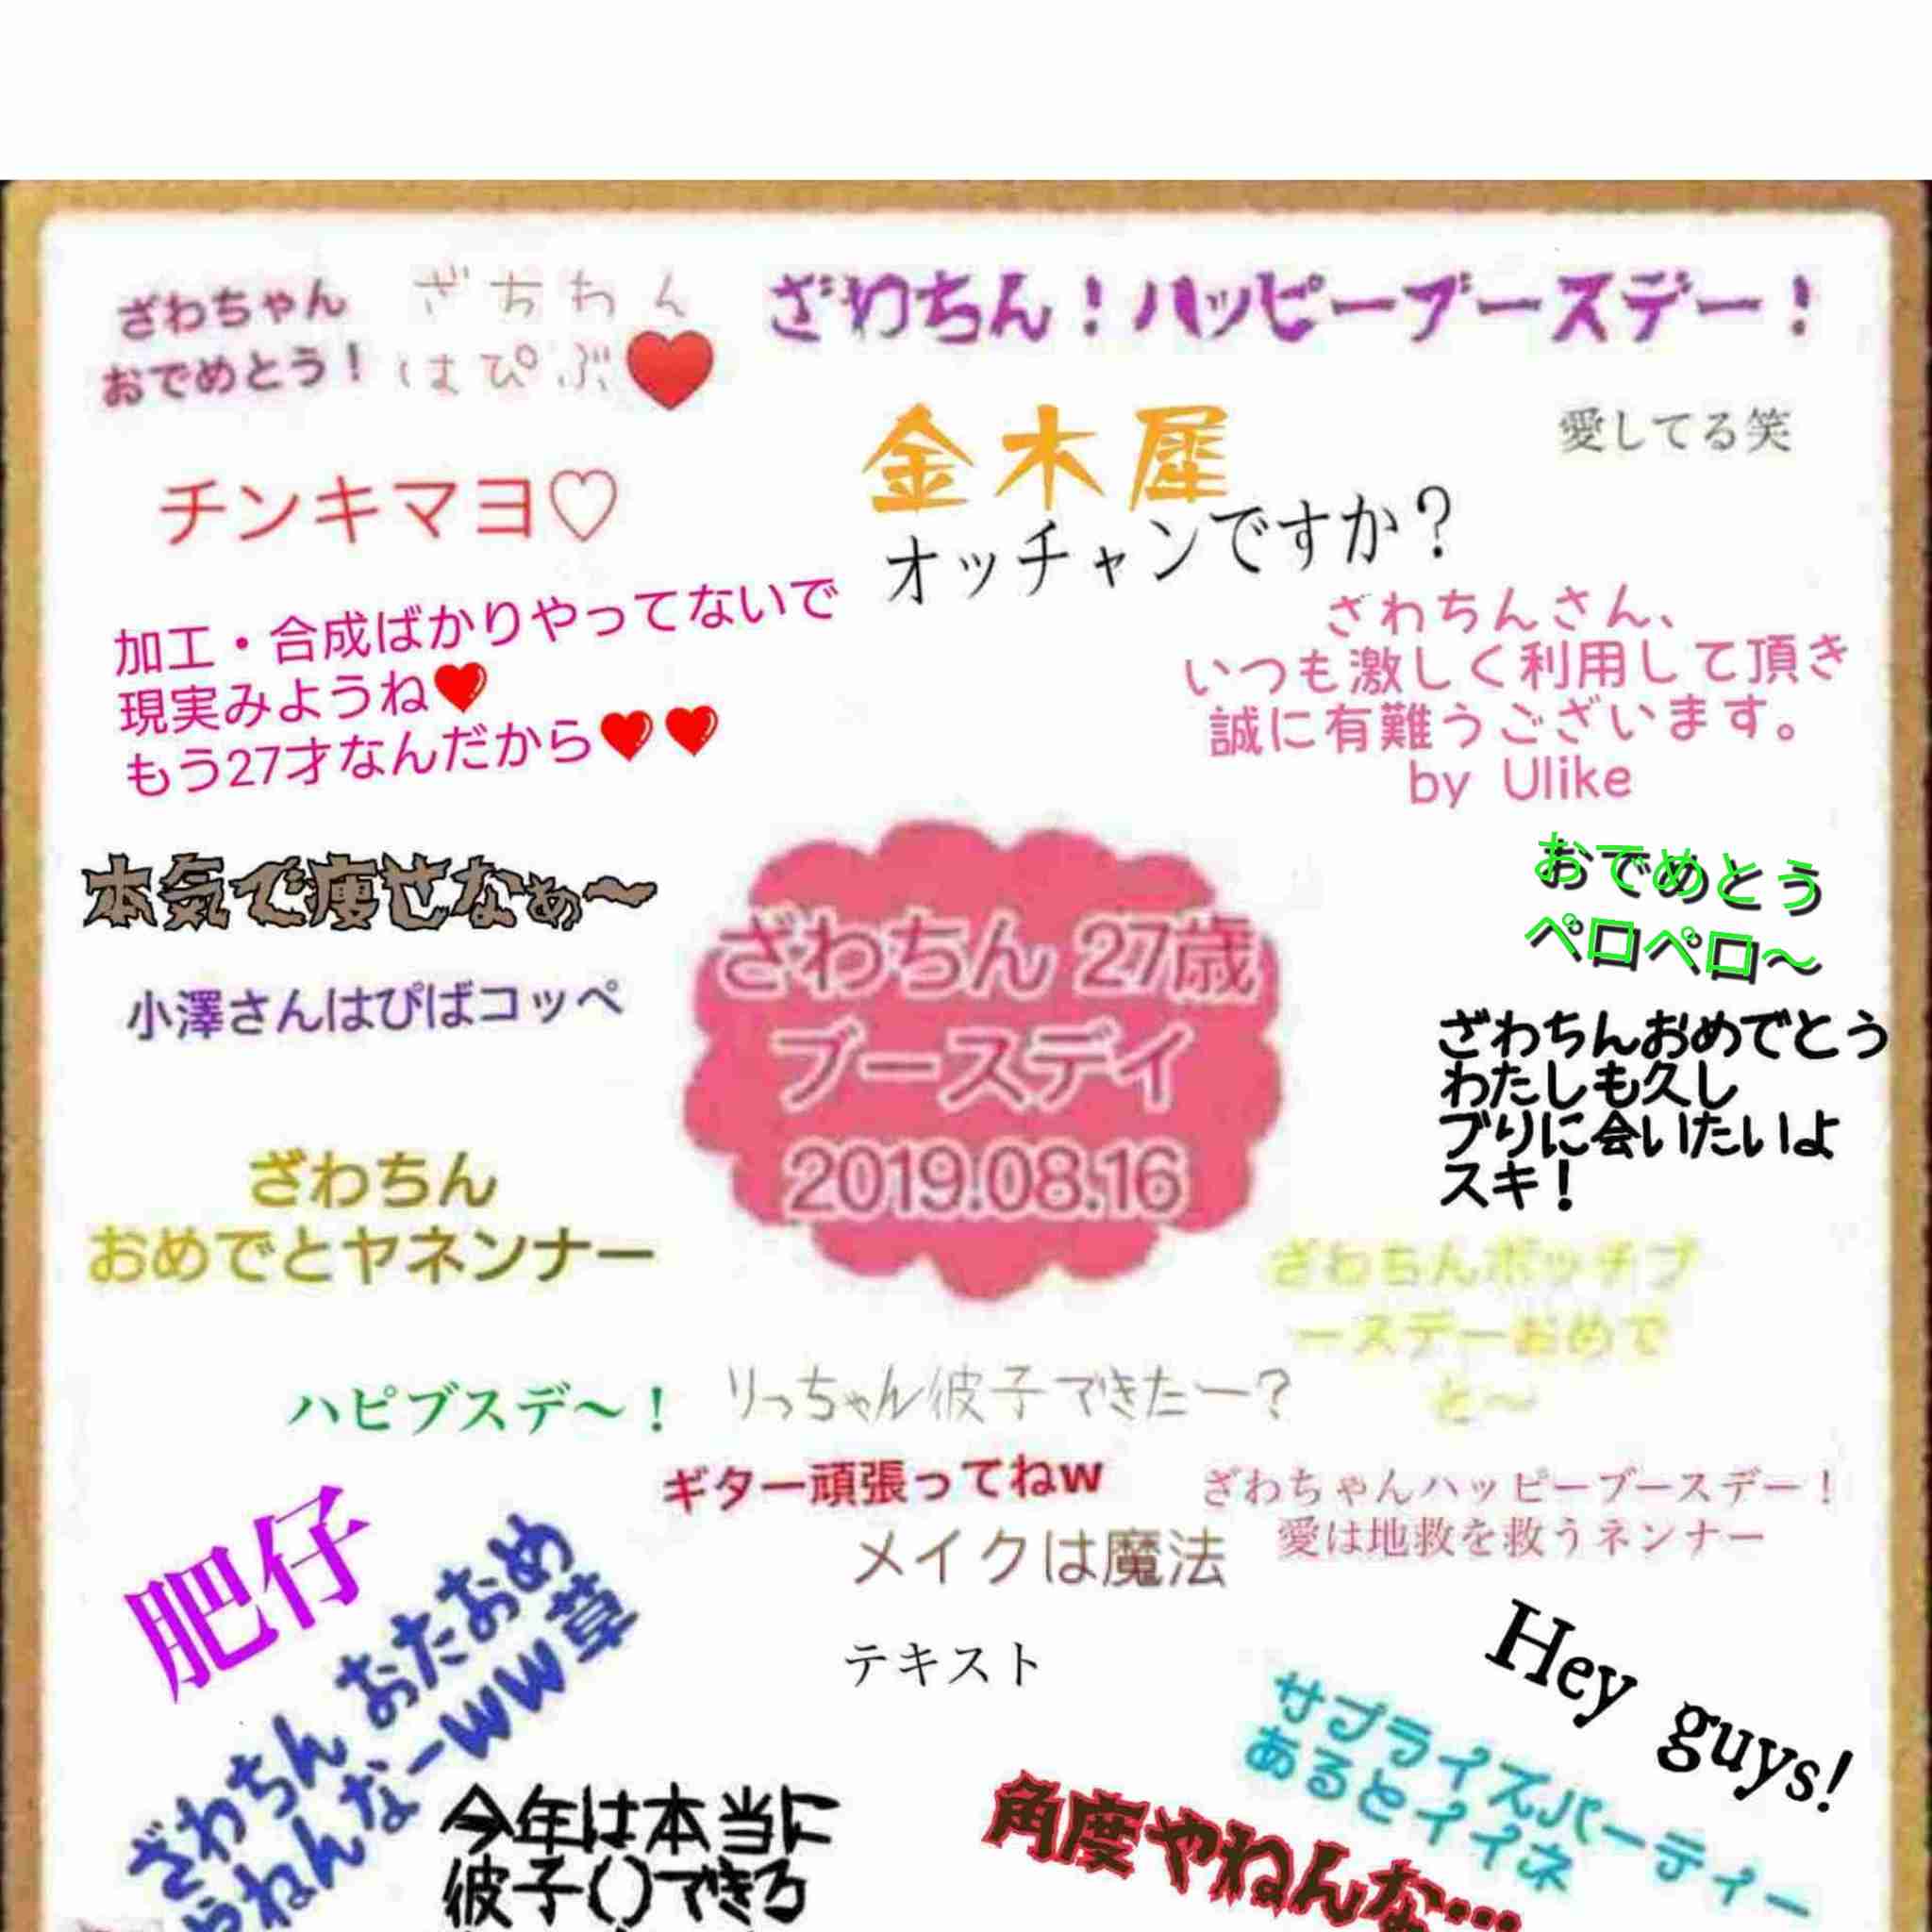 ざわちゃん
おでめとう！
ざちわん
はぴぶ
ざわちん！ハッピーブースデー！
金木犀
愛してる笑
チンキマヨ♡
オッチャンですか？
加工・合成ばかりやってないで
現実みようね
もう27才なんだから
ざわちんさん、
いつも激しく利用して頂き
誠に有難うございます。
by Ulike
本気で痩せなぁ〜
おでめとう
ペロペロ〜
小澤さんはぴばコッペ
ざわちん 27歳
ブースデイ
2019.08.16
ざわちんおめでとう
わたしも久し
ブりに会いたいよ
スキ！
ざわちん
おめでとヤネンナー
ざわちんボッチブ
ースデーおめで
と〜
ハピブスデ〜！
りっちゃん彼子できたー？
ギター頑張ってねw
ざわちゃんハッピーブースデー！
愛は地救を救うネンナー
メイクは魔法
肥仔
ざわちん おたおめ
やねんなーww草
テキスト
Hey guys!
サプライズパーティー
あるとイイネ
今年は本当に
彼子()できろ
角度やねんな…